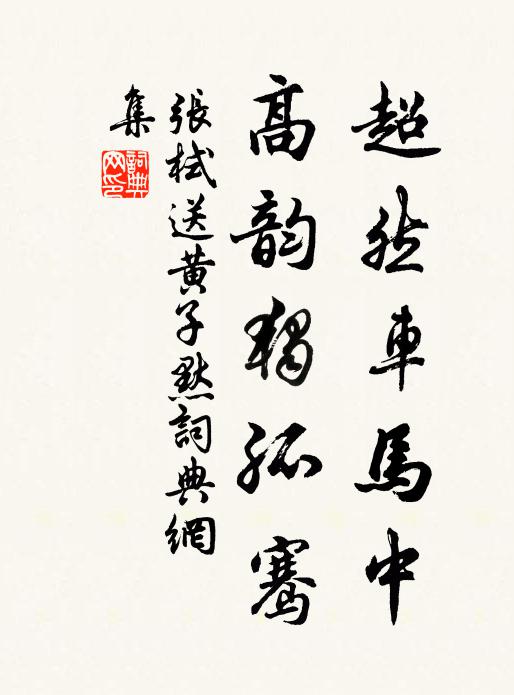 超然車馬中
高韵獨孤騫
張栻送黄子默詞典網
集
詞典网印